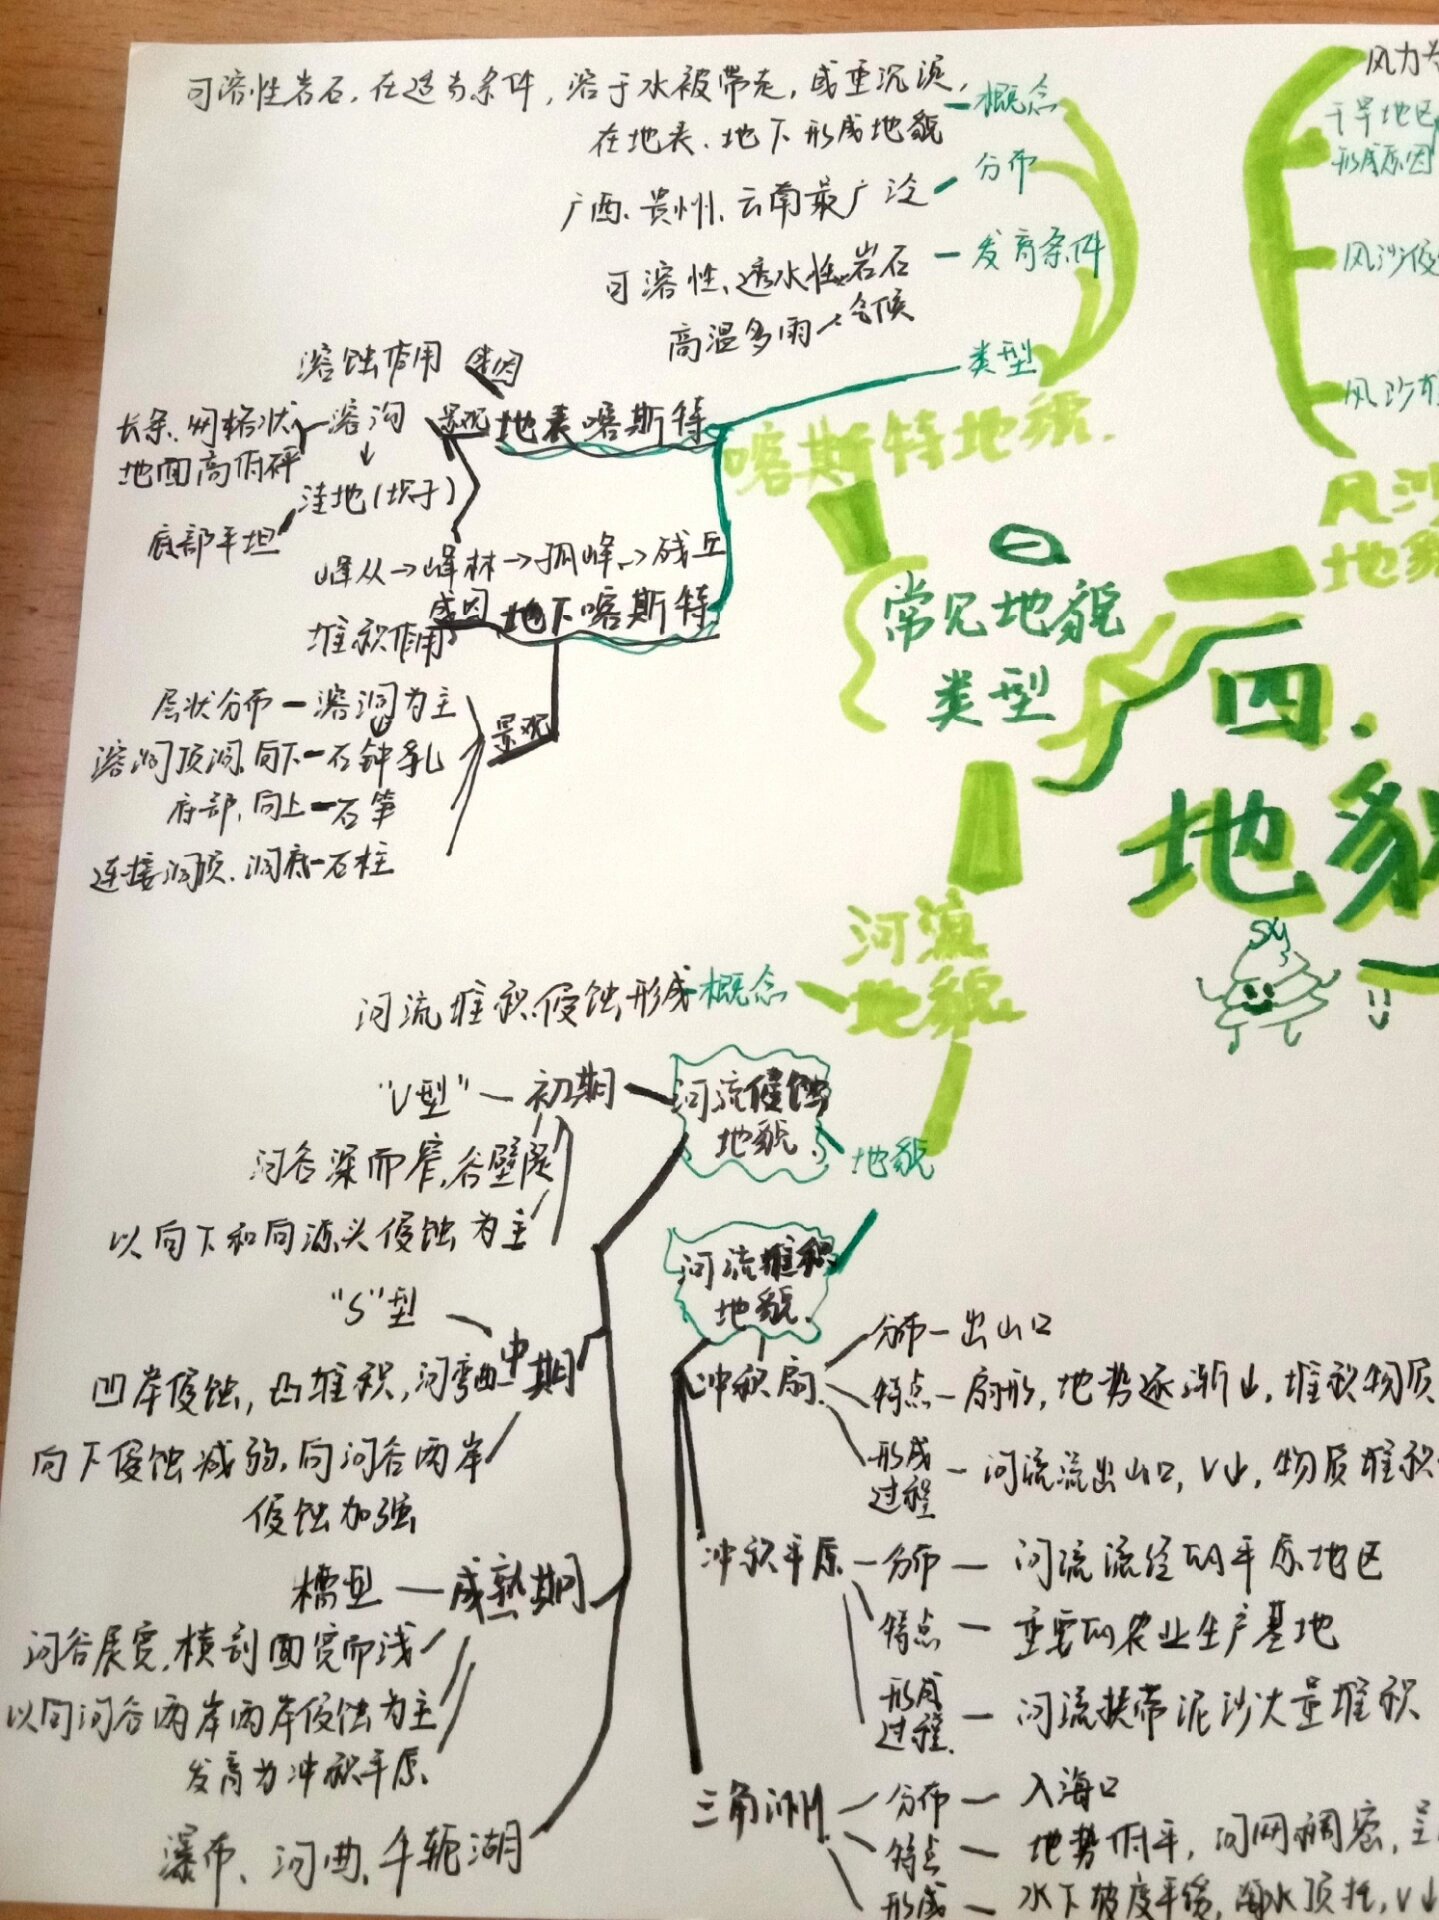 可溶性岩石,在适当条件,溶于水被带走,或重沉淀,
在地表、地下形成地貌
概念
分布
广西、贵州、云南最广泛
发育条件
可溶性、透水性岩石
高温多雨 气候
类型
喀斯特地貌.
溶蚀作用 成因
地表喀斯特
景观
长条、网格状
地面高低
溶沟
洼地(坝子)
底部平坦
峰从→峰林→孤峰→残丘
成因 地下喀斯特
堆积作用
景观
层状分布 溶洞为主
溶洞顶洞,向下 石钟乳
底部,向上 石笋
连接洞顶、洞底 石柱
㊀
常见地貌
类型
四.
地貌
风力
干旱地区
形成原因
风沙侵
风沙
风沙
地貌
河流
地貌
概念
河流堆积侵蚀形成
地貌
河流侵蚀
地貌.
初期
"V型"
河谷深而窄,谷壁陡
以向下和向源头侵蚀为主
中期
"S"型
凹岸侵蚀,凸堆积,河弯曲
向下侵蚀减弱,向河谷两岸
侵蚀加强
成熟期
槽型
河谷展宽,横剖面宽而浅
以向河谷两岸两岸侵蚀为主
发育为冲积平原
瀑布、河曲,牛轭湖
河流堆积
地貌.
冲积扇
分布 出山口
特点 扇形,地势逐渐↓,堆积物质
形成
过程
河流流出山口,V↓,物质堆积
冲积平原
分布 河流流经的平原地区
特点 重要的农业生产基地
形成
过程.
河流携带泥沙大量堆积
三角洲
分布 入海口
特点 地势低平,河网稠密,呈
形成 水下坡度平缓,海水顶托,V↓